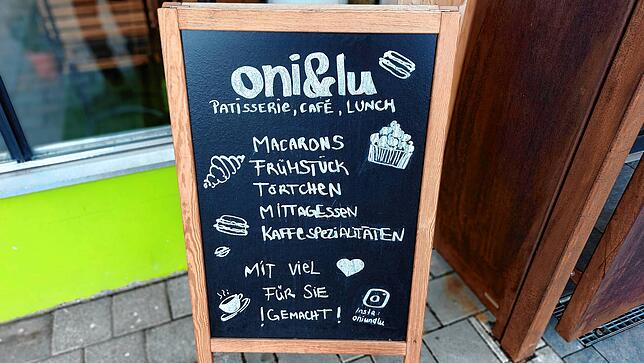 oni&lu
PATISSERIE, CAFÉ, LUNCH
MACARONS
FRÜHSTÜCK
TÖRTCHEN
MITTAGESSEN
KAFFESPEZIALITÄTEN
MIT VIEL
FÜR SIE
!GEMACHT!
Insta:
oniundlu